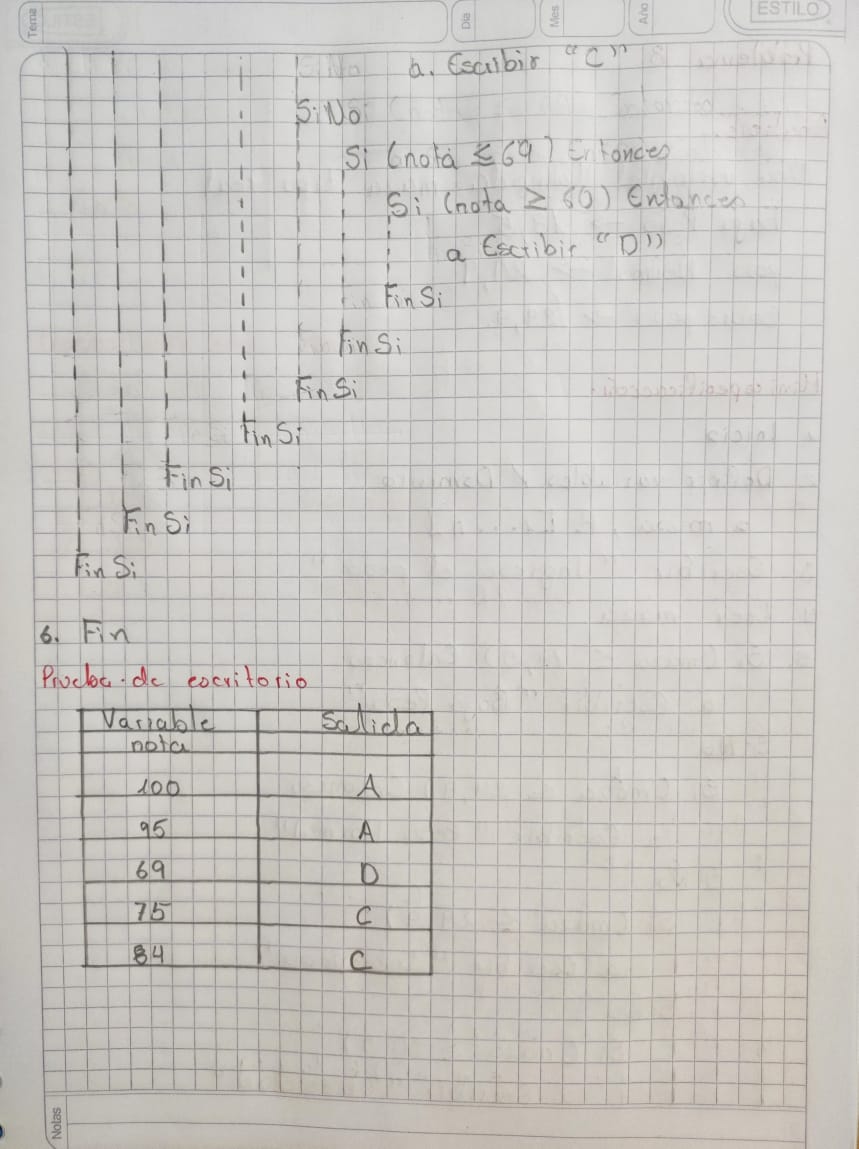 Tema Día Mes Año ESTILO
a. Escribir "C"
SiNo
Si (nota ≤ 69) Entonces
Si (nota ≥ 60) Entonces
a Escribir "D"
Fin Si
Fin Si
Fin Si
Fin Si
Fin Si
Fin Si
Fin Si
6. Fin
Prueba de escritorio
Variable Salida
nota
100 A
95 A
69 D
75 C
84 C
Notas